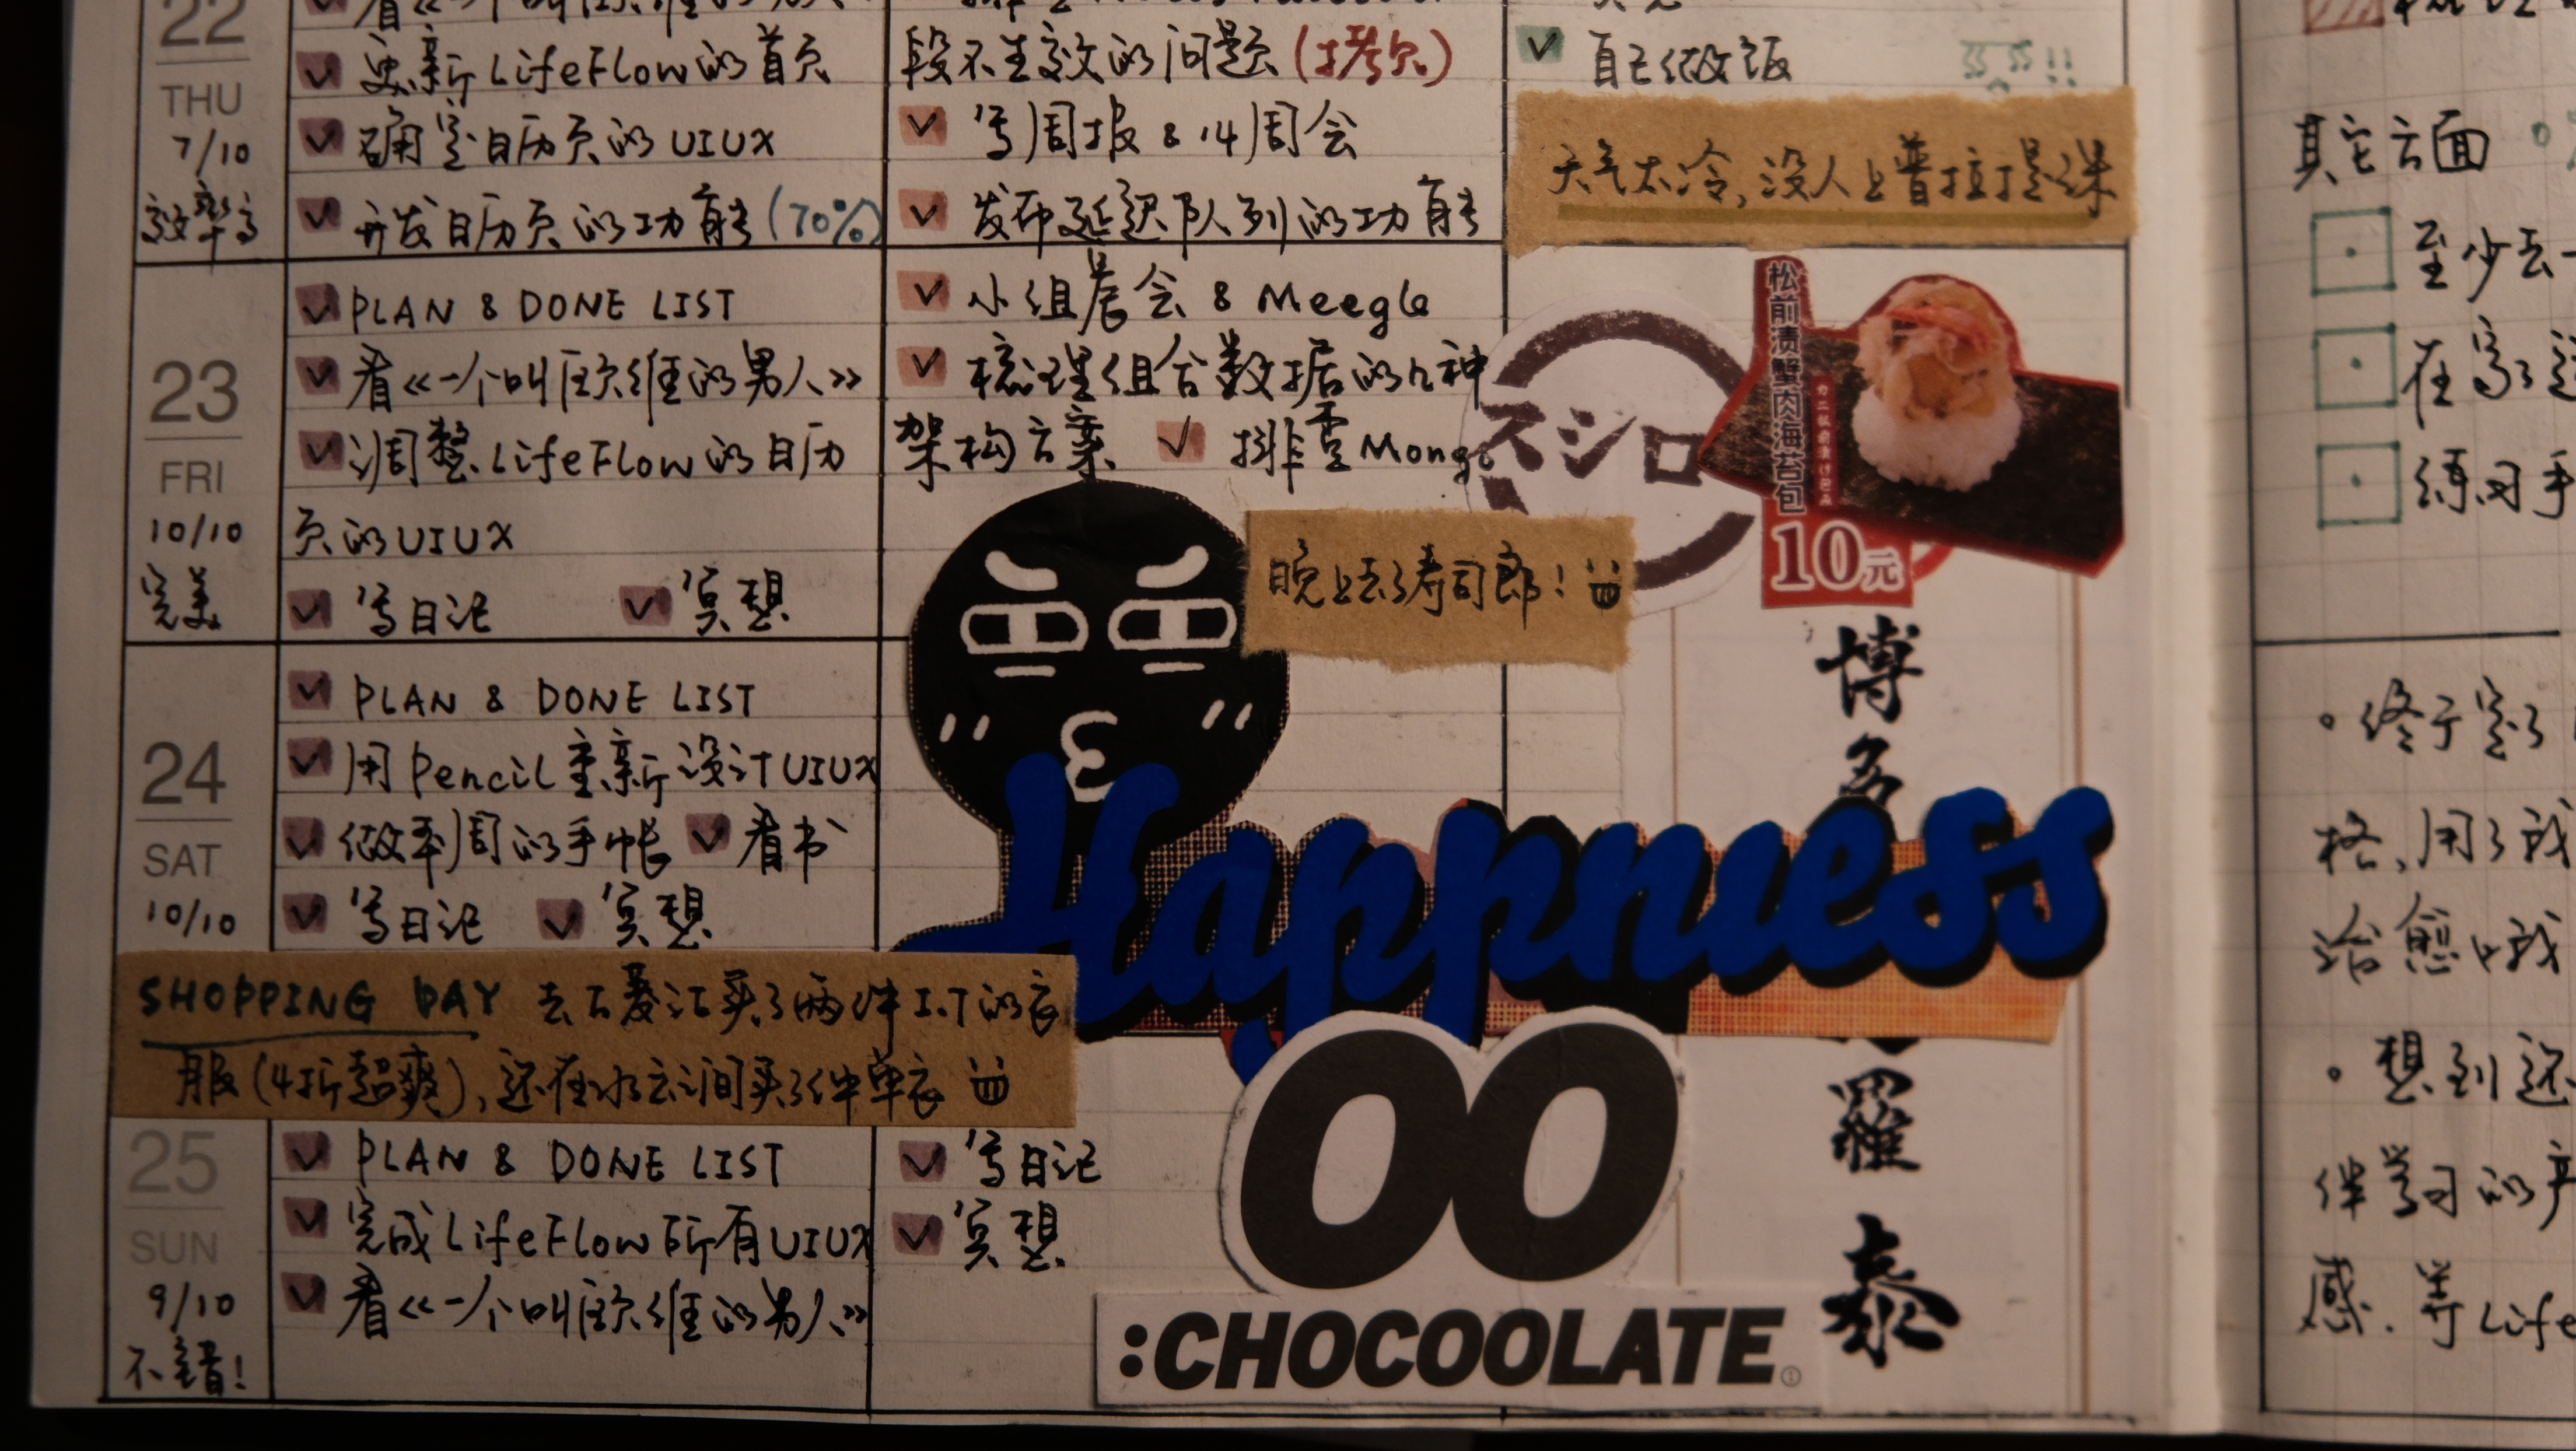 22
THU
7/10
效率高
看《一个叫欧维的男人
更新LifeFlow的首页
确定日历页的UIUX
开发日历页的功能(70%)
段不生效的问题(拷贝)
写周报 & 14周会
发布延迟队列的功能
自己做饭
!!
天气太冷,没人上普拉提课
23
FRI
10/10
完美
PLAN & DONE LIST
看《一个叫欧维的男人》
调整LifeFlow的日历
页的UIUX
写日记 冥想
小组晨会 & Meegle
梳理组合数据的几种
架构方案 排查Mongo
スシロ
松前漬蟹肉海苔包
10元
晚上去了寿司郎!
24
SAT
10/10
PLAN & DONE LIST
用Pencil重新设计UIUX
做本周的手帐 看书
写日记 冥想
SHOPPING DAY 去万菱汇买了两件I.T的衣
服(4折超爽),还在水云涧买了件单衣
Happiness
博
多
羅
泰
OO
:CHOCOOLATE
25
SUN
9/10
不错!
PLAN & DONE LIST
完成LifeFlow所有UIUX
看《一个叫欧维的男人》
写日记
冥想
其它方面
至少去一
在家
练习手
终于定了
格,用了我
治愈哦
想到还
伴学习的产
感.等Life